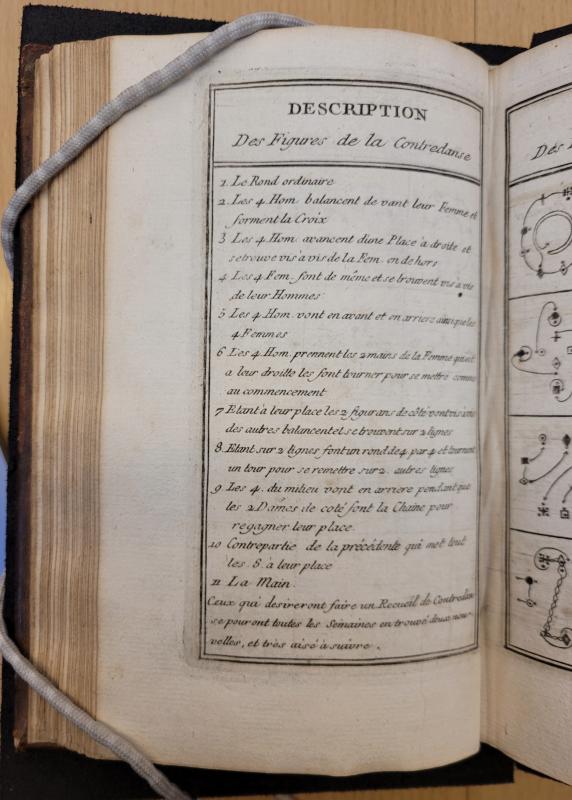 DESCRIPTION
Des Figures de la Contredanse
1 Le Rond ordinaire
2. Les 4. Hom. balancent de vant leur Femme et
forment la Croix
3 Les 4. Hom. avancent d'une Place à droite et
se trouve vis à vis de la Fem. en de hors
4 Les 4 Fem. font de même et se trouvent vis à vis
de leur Hommes
5 Les 4. Hom. vont en avant et en arriere ainsi que les
4 Femmes
6 Les 4. Hom. prennent les 2 mains de la Femme qui est
a leur droitte les font tourner pour se mettre comme
au commencement
7 Etant à leur place les 2 figurans de côté vont vis à vis
des autres balancent et se trouvent sur 2 lignes
8. Etant sur 2 lignes font un rond de 4 par 4 et tournent
un tour pour se remettre sur 2. autres lignes
9 Les 4. du milieu vont en arriere pendant que
les 2 Dames de coté font la Chaîne pour
regagner leur place.
10 Contrepartie de la précédente qui met tout
les 8. à leur place
11 La Main.
Ceux qui desireront faire un Recueil de Contredan
se pouront toutes les Semaines en trouvé deux nou
velles, et très aisé à suivre.